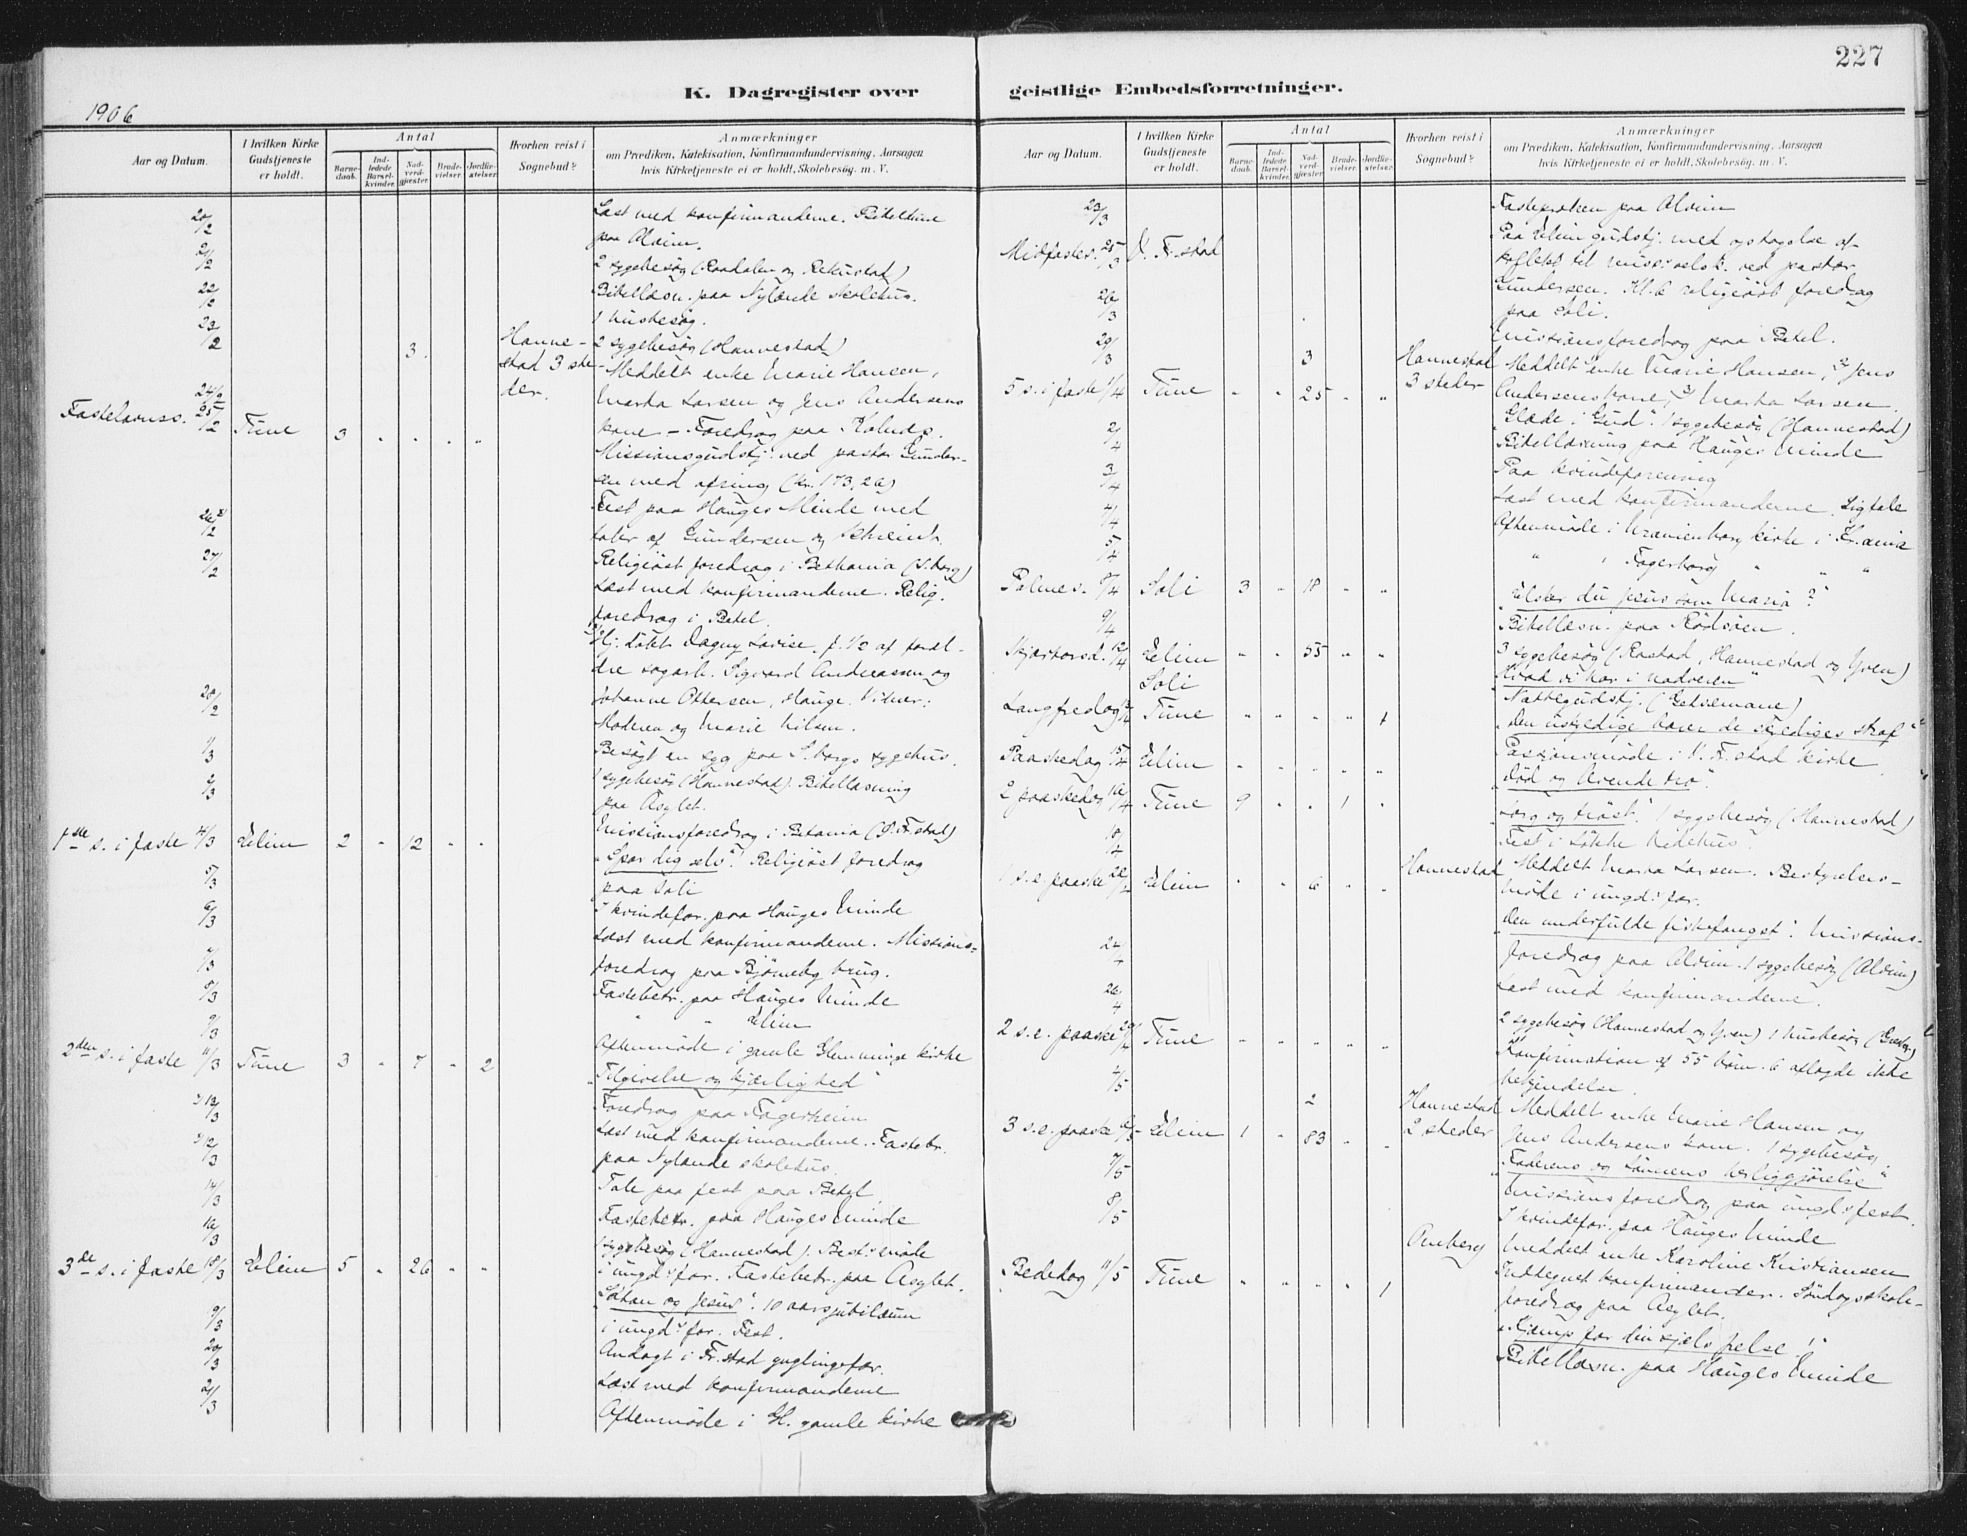 227
K. Dagregister over geistlige Embedsforretninger.
1906
Aar og Datum.
I hvilken Kirke Gudstjeneste er holdt.
Antal
Barnedaab.
Indledede Barselkvinder.
Nadverdgjæster
Brudevielser.
Jordfæstelser
Hvorhen reist i Sognebud?
Anmærkninger
om Prædiken, Katekisation, Konfirmandundervisning, Aarsagen
hvis Kirketjeneste ei er holdt, Skolebesøg. m. V.
20/2 Læst med konfirmanderne. Bibeltime
paa Alvim.
21/2 2 sygebesøg (Raadalen og Rekustad)
22/2 Bibellæsn. paa Nylænde skolehus.
1 husbesøg.
23/2 3 Hannestad 3 steder. 2 sygebesøg (Hannestad)
Meddelt enke Marie Hansen,
24/2 Marta Larsen og Jens Andersens
Fastelavnss. 25/2 Tune 3 " " " "
kone – Foredrag paa Kalnes.
Missionsgudstj. ved pastor Gunder-
sen med ofring (kr. 173,26)
Fest paa Hauges Minde med
26/2 taler af Gundersen og
27/2 Religiøst foredrag i Bethania (S.borg)
Læst med konfirmanderne. Relig.
foredrag i Betel.
Hj. døbt Dagny Lovise, f. 1/2 af foræl-
dre sagarb. Sigvard Andreassen og
Johanne Ottersen, Hauge. Vitner:
28/2 Moderen og Marie Nilsen.
1/3 Besøgt en syg paa S.borgs sygehus.
2/3 1 sygebesøg (Hannestad). Bibellæsning
paa Asylet.
Missionsforedrag i Betania (V. Fr.stad)
1ste s. i faste 4/3 Elim 2 " 12 " "
"Spar dig selv". Religiøst foredrag
5/3 paa Soli
6/3 I kvindefor. paa Hauges Minde
Læst med konfirmanderne. Missions-
7/3 foredrag paa Bjørneby brug.
8/3 Fastebetr. paa Hauges Minde
9/3 " " Elim
2den s. i faste 11/3 Tune 3 " 7 " 2
Aftenmøde i gamle Glemminge kirke
"Tilgivelse og kjærlighed"
Foredrag paa Fagerheim
13/3 Læst med konfirmanderne. Fastebtr.
paa Nylænde skolehus.
14/3 Tale paa fest paa Betel.
16/3 Fastebetr. paa Hauges Minde
1 sygebesøg (Hannestad). Best. møde
3de s. i faste 18/3 Elim 5 " 26 " "
i ungd. for. Fastebetr. paa Asylet.
"Satan og Jesus". 10 aarsjubilæum
i ungd. for. Fest.
20/3 Andagt i Fr.stad ynglingsfor.
Læst med konfirmanderne
21/3 Aftenmøde i Gl. gamle kirke
Aar og Datum.
I hvilken Kirke Gudstjeneste er holdt.
Antal
Barnedaab.
Indledede Barselkvinder.
Nadverdgjæster
Brudevielser.
Jordfæstelser
Hvorhen reist i Sognebud?
Anmærkninger
om Prædiken, Katekisation, Konfirmandundervisning, Aarsagen
hvis Kirketjeneste ei er holdt, Skolebesøg. m. V.
23/3 Fasteprøken paa Alvim
Midfastes. 25/3 V. Fr.stad
Paa Elim gudstj. med optagelse af
kollekt til miss. selsk. ved pastor
Gundersen. Kl. 6 religiøst foredrag
26/3 paa Soli.
29/3 Missionsforedrag paa Betel.
3 Hannestad 3 steder Meddelt enke Marie Hansen, Jens
5 s. i faste 1/4 Tune " " 25 " "
Andersens kone, Marta Larsen.
"Glæde i Gud". 1 sygebesøg (Hannestad)
2/4 Bibellæsning paa Hauges Minde
3/4 Paa kvindeforening
Læst med konfirmanderne. Ligtale
4/4 Aftenmøde i Uranienborg kirke i Kr.ania
5/4 " i Fagerborg " " "
Palmes. 8/4 Soli 3 " 18 " "
"Elsker du Jesus som Maria?"
9/4 Bibellæsn. paa Rødsøen.
Skjærtorsd. 12/4 Elim " " 55 " "
3 sygebesøg (Rostad, Hannestad og Yven)
Soli "Hvad vi har i nadveren"
Langfredag 13/4 Tune " " " " 1
Nattegudstj. (Getsemane)
"Den uskyldige bærer de skyldiges straf"
Paaskedag 15/4 Elim " " " " "
Passionsmøde i V. Fr.stad kirke
"Død og levende tro".
2 paaskedag 16/4 Tune 9 " " 1 "
"Sorg og trøst". 1 sygebesøg (Hannestad)
18/4 Fest i Løkke bedehus.
Hannestad Meddelt Marta Larsen. Bestyrelses-
1 s. e. paaske 22/4 Elim " " 6 " "
møde i ungd. for.
"Den underfulde fiskefangst". Missions-
24/4 foredrag paa Alvim. 1 sygebesøg (Alvim)
26/4 Læst med konfirmanderne.
2 s. e. paaske 29/4 Tune " " " " "
2 sygebesøg (Hannestad og Yven) 1 husbesøg
Konfirmation af 55 børn. 6 aflagde ikke
4/5 bekjendelse
2 Hannestad 2 steder Meddelt enke Marie Hansen og
3 s. e. paaske 6/5 Elim 1 " 83 " "
Jens Andersens kone. 1 sygebesøg
7/5 "Faderens og sønnens herliggjørelse"
8/5 Missionsforedrag paa ungd. fest.
I kvindefor. paa Hauges Minde
Meddelt enke Karoline Kristiansen
Bededag 11/5 Tune " " " " 1
Indtegnet konfirmander. Søndagsskole-
foredrag paa Asylet.
"Kjæmp for din sjæls frelse!"
Bibellæsn. paa Hauges Minde